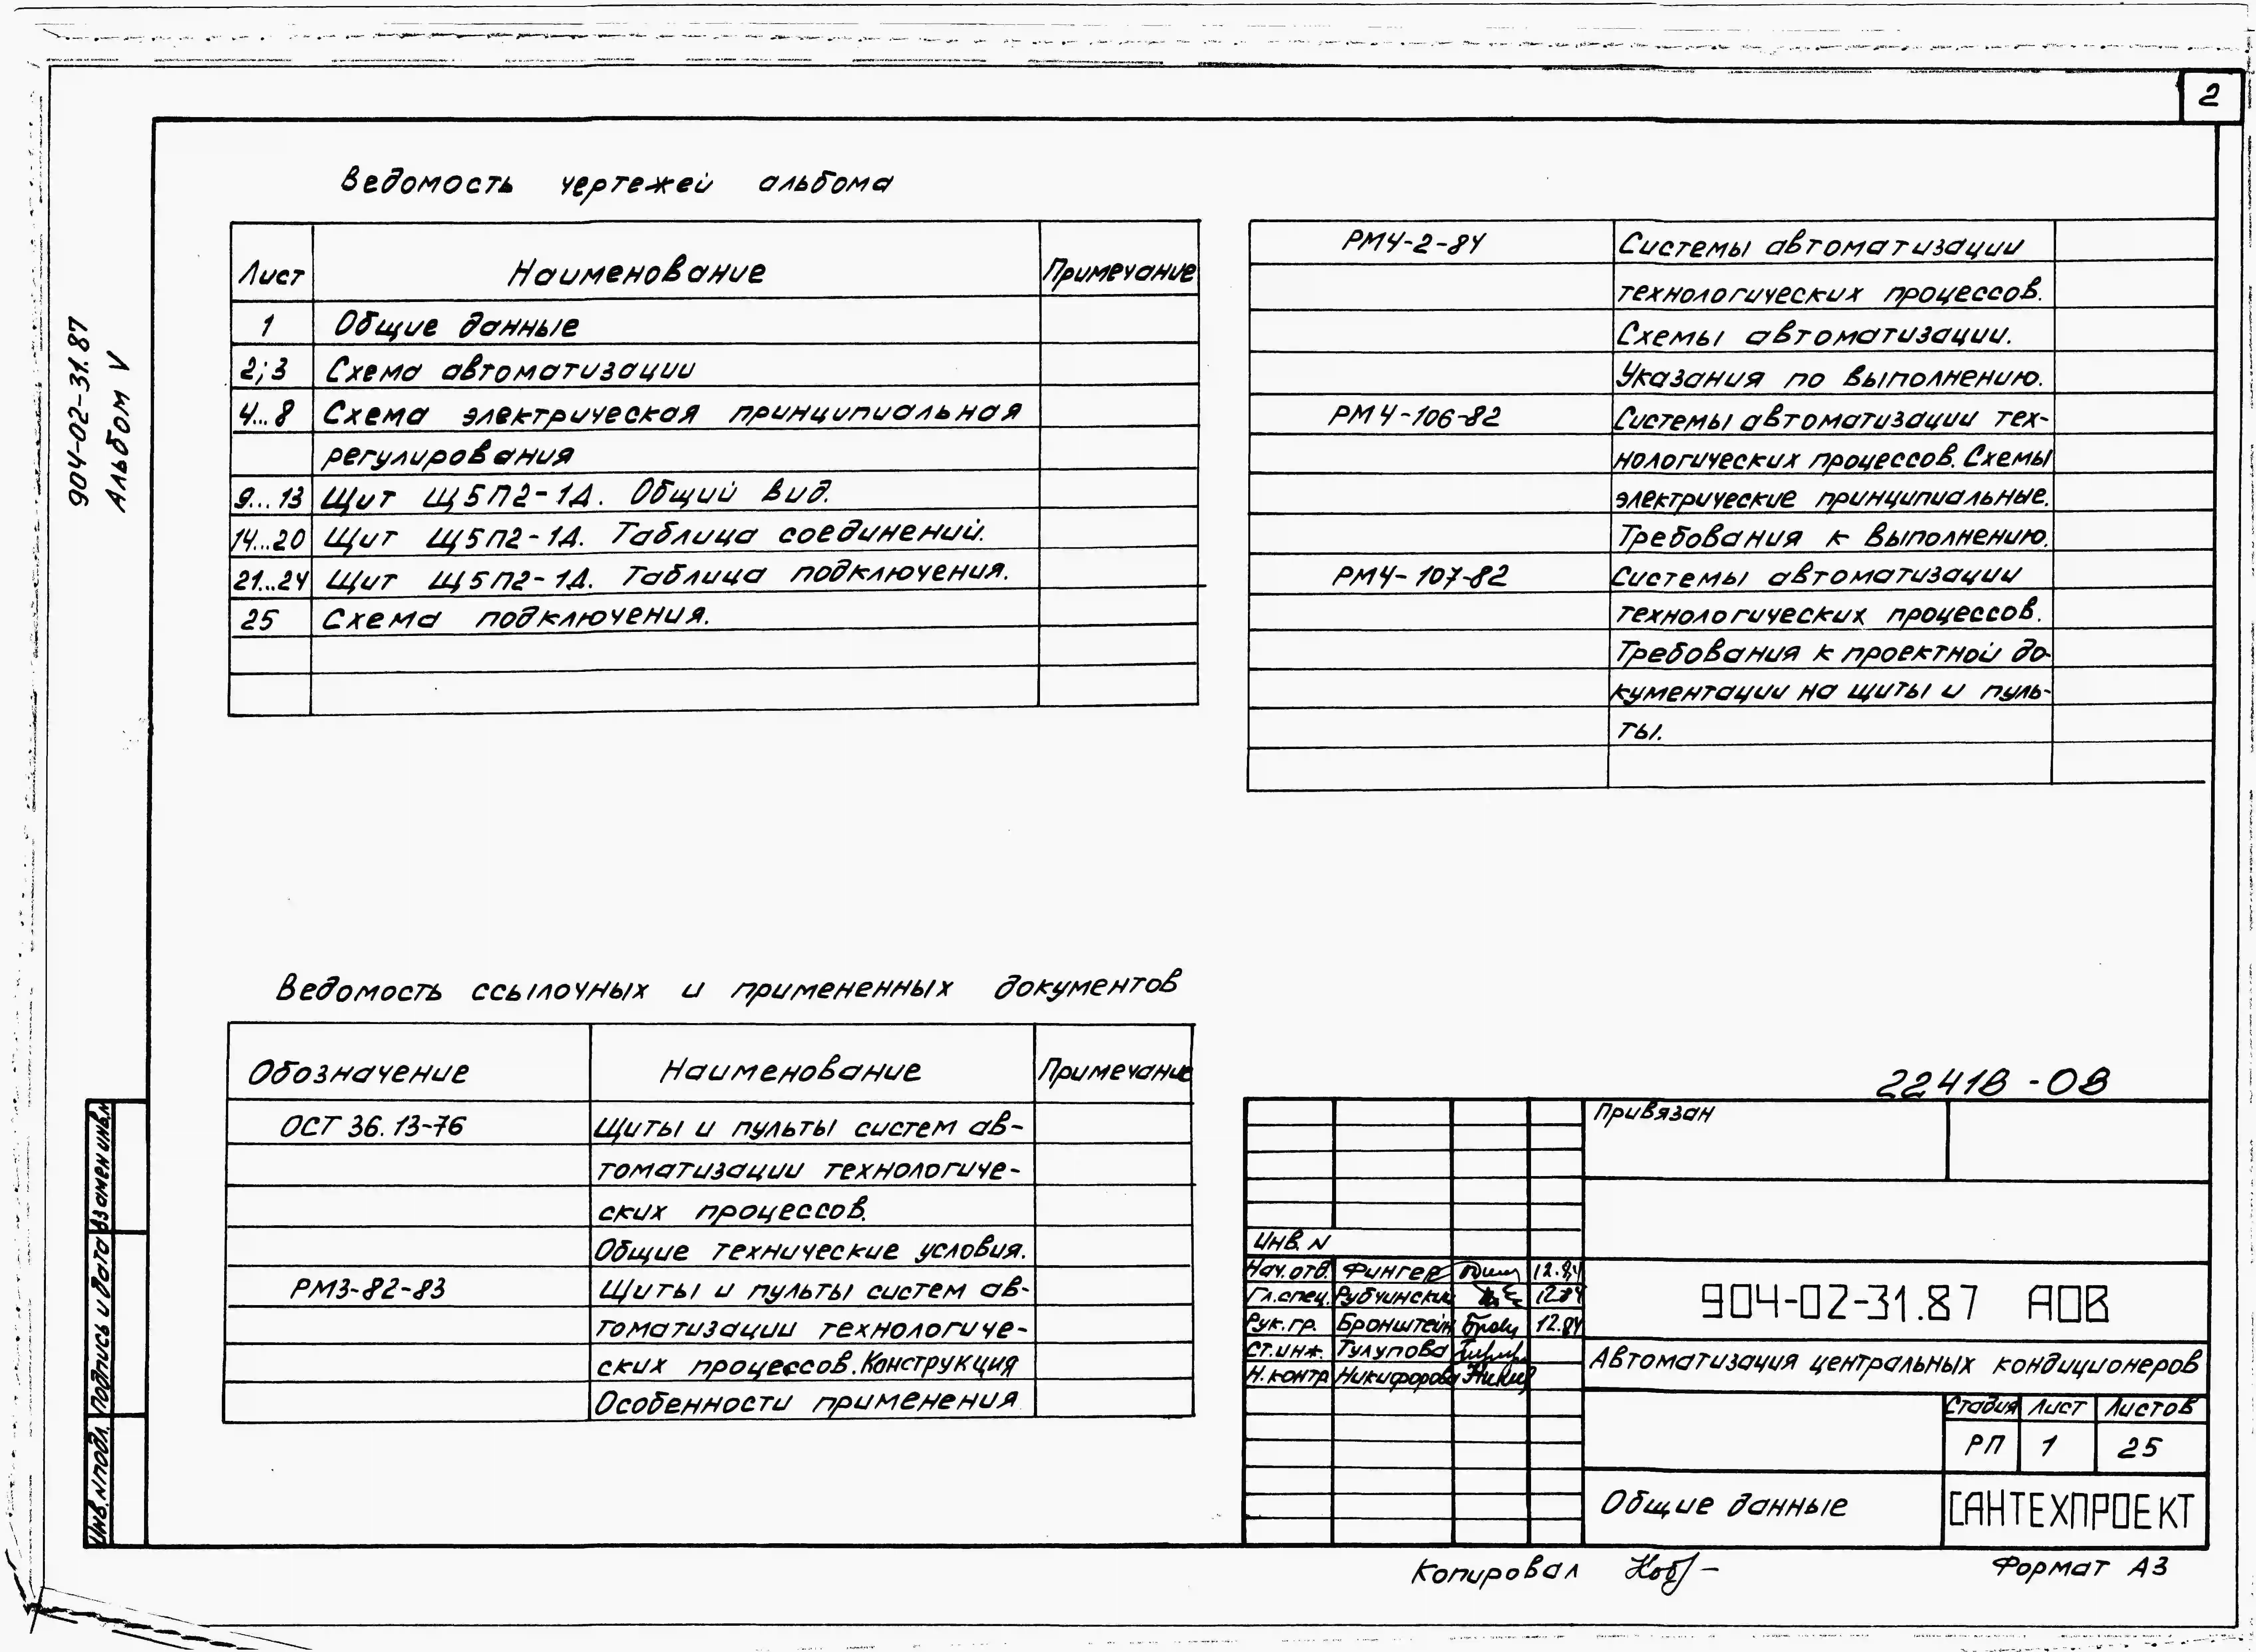 2
904-02-31.87
Альбом V
Ведомость чертежей альбома
Лист Наименование Примечание
1 Общие данные
2;3 Схема автоматизации
4...8 Схема электрическая принципиальная
регулирования
9...13 Щит Щ5П2-1Д. Общий вид.
14...20 Щит Щ5П2-1Д. Таблица соединений.
21...24 Щит Щ5П2-1Д. Таблица подключения.
25 Схема подключения.
РМ4-2-84 Системы автоматизации
технологических процессов.
Схемы автоматизации.
Указания по выполнению.
РМ4-106-82 Системы автоматизации тех-
нологических процессов. Схемы
электрические принципиальные.
Требования к выполнению.
РМ4-107-82 Системы автоматизации
технологических процессов.
Требования к проектной до-
кументации на щиты и пуль-
ты.
Ведомость ссылочных и примененных документов
Обозначение Наименование Примечание
ОСТ 36.13-76 Щиты и пульты систем ав-
томатизации технологиче-
ских процессов.
Общие технические условия.
РМ3-82-83 Щиты и пульты систем ав-
томатизации технологиче-
ских процессов. Конструкция
Особенности применения
22418-08
Привязан
Инв. N
Нач. отд. Фингер 12.84
Гл. спец. Рубчинский 12.84
Рук. гр. Бронштейн 12.84
Ст. инж. Тулупова
Н. контр Никифорова
904-02-31.87 АОВ
Автоматизация центральных кондиционеров
Стадия Лист Листов
РП 1 25
Общие данные
САНТЕХПРОЕКТ
Копировал
Формат А3
Взамен инв.N
Подпись и дата
Инв. N подл.